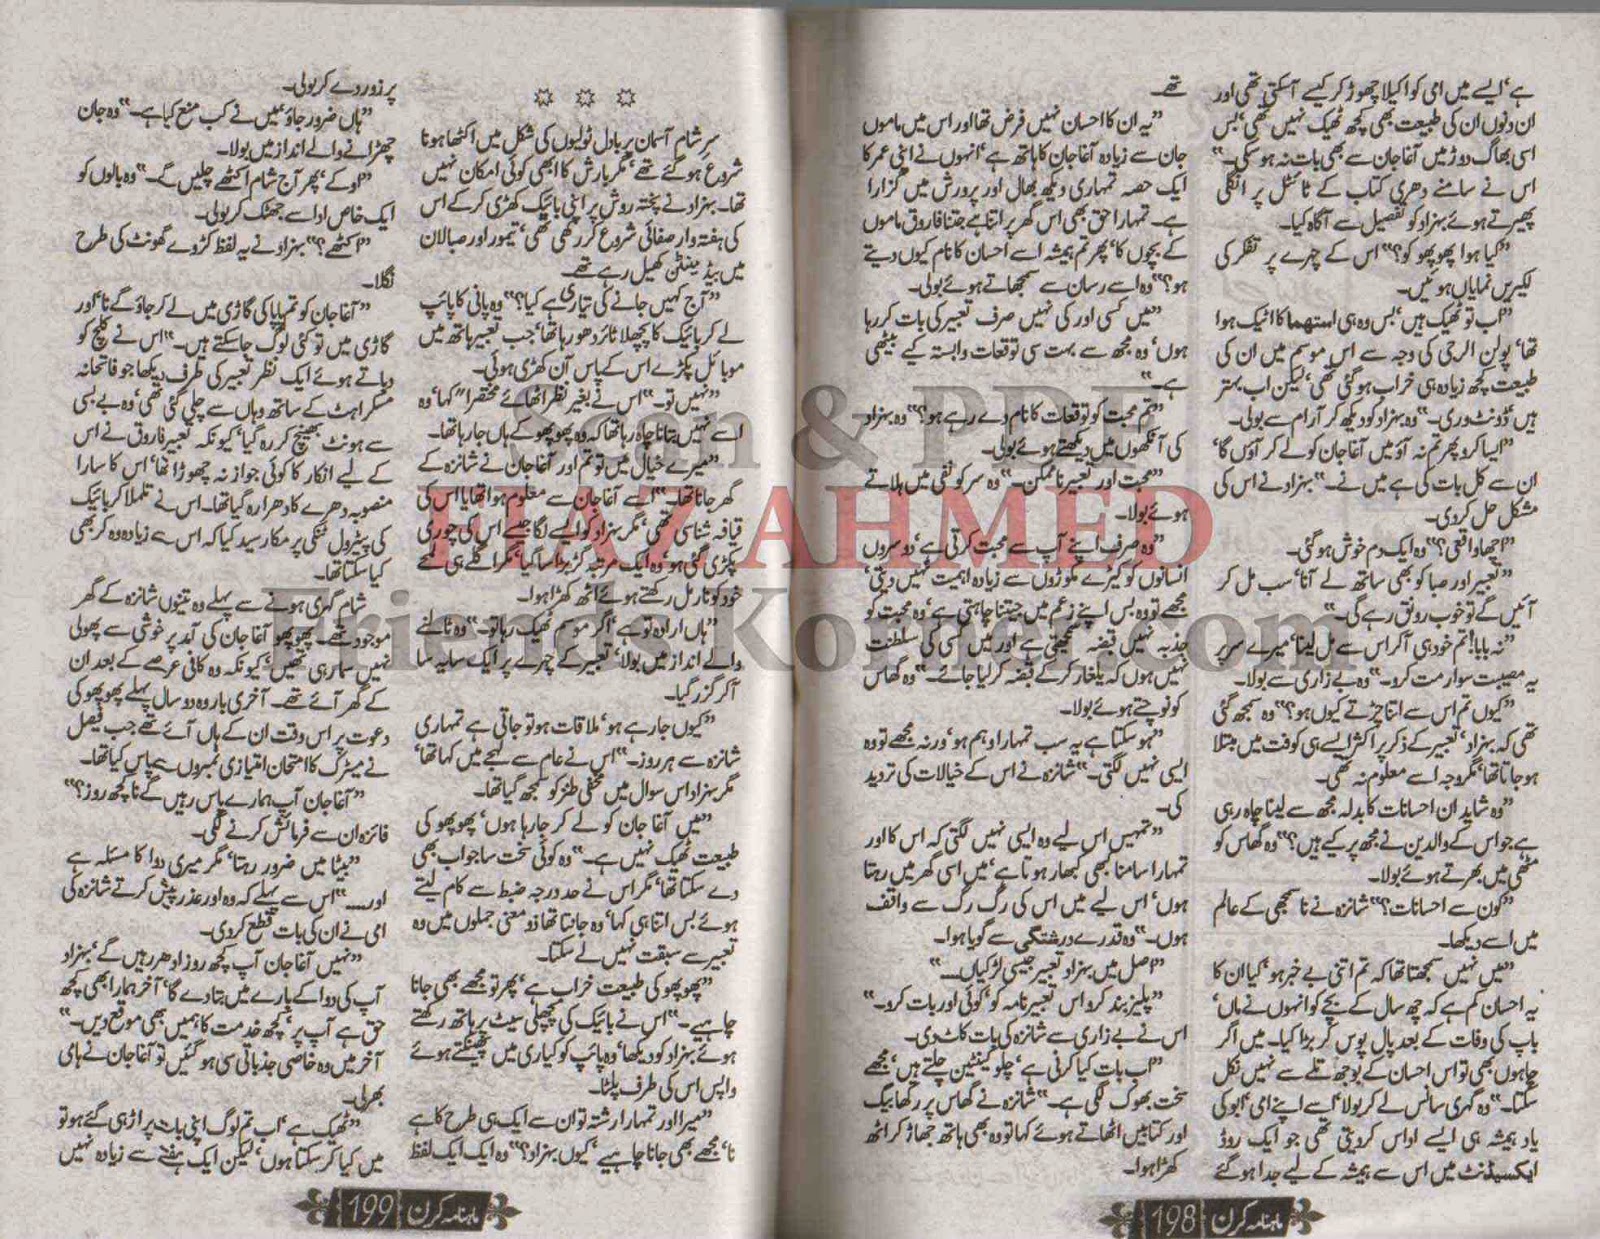 ہے‘ ایسے میں امی کو اکیلا چھوڑ کر کیسے آ سکتی تھی اور
ان دنوں ان کی طبیعت بھی کچھ ٹھیک نہیں تھی‘ بس
اسی بھاگ دوڑ میں آغا جان سے بھی بات نہ ہو سکی۔“
اس نے سامنے دھری کتاب کے ٹائٹل پر انگلی
پھیرتے ہوئے بہزاد کو تفصیل سے آگاہ کیا۔
”کیا ہوا پھوپھو کو؟“ اس کے چہرے پر تفکر کی
لکیریں نمایاں ہوئیں۔
”اب تو ٹھیک ہیں‘ بس وہ ہی استھما کا اٹیک ہوا
تھا‘ پولن الرجی کی وجہ سے اس موسم میں ان کی
طبیعت کچھ زیادہ ہی خراب ہو گئی تھی‘ لیکن اب بہتر
ہیں ڈونٹ وری۔“ وہ بہزاد کو دیکھ کر آرام سے بولی۔
”ایسا کرو پھر تم نہ آؤ میں آغا جان کو لے کر آؤں گا‘
ان سے کل بات کی ہے میں نے۔“ بہزاد نے اس کی
مشکل حل کر دی۔
”اچھا واقعی؟“ وہ ایک دم خوش ہو گئی۔
”تعبیر اور صبا کو بھی ساتھ لے آنا‘ سب مل کر
آئیں گے تو خوب رونق رہے گی۔“
”نہ بابا! تم خود ہی آ کر اس سے مل لینا‘ میرے سر پر
یہ مصیبت سوار مت کرو۔“ وہ بے زاری سے بولا۔
”کیوں تم اس سے اتنا چڑتے کیوں ہو؟“ وہ سمجھ گئی
تھی کہ بہزاد‘ تعبیر کے ذکر پر اکثر ایسے ہی کوفت میں مبتلا
ہو جاتا تھا‘ مگر وجہ اسے معلوم نہ تھی۔
”وہ شاید ان احسانات کا بدلہ مجھ سے لینا چاہ رہی
ہے جو اس کے والدین نے مجھ پر کیے ہیں؟“ وہ گھاس کو
مٹھی میں بھرتے ہوئے بولا۔
”کون سے احسانات؟“ شانزہ نے نا سمجھی کے عالم
میں اسے دیکھا۔
”میں نہیں سمجھتا تھا کہ تم اتنی بے خبر ہو‘ کیا ان کا
یہ احسان کم ہے کہ چھ سال کے بچے کو انہوں نے ماں‘
باپ کی وفات کے بعد پال پوس کر بڑا کیا۔ میں اگر
چاہوں بھی تو اس احسان کے بوجھ تلے سے نہیں نکل
سکتا۔“ وہ گہری سانس لے کر بولا‘ اسے اپنے امی‘ ابو کی
یاد ہمیشہ ہی ایسے اداس کر دیتی تھی جو ایک روڈ
ایکسیڈنٹ میں اس سے ہمیشہ کے لیے جدا ہو گئے
تھے۔
”یہ ان کا احسان نہیں فرض تھا اور اس میں ماموں
جان سے زیادہ آغا جان کا ہاتھ ہے‘ انہوں نے اپنی عمر کا
ایک حصہ تمہاری دیکھ بھال اور پرورش میں گزارا
ہے۔ تمہارا حق بھی اس گھر پر اتنا ہے جتنا فاروق ماموں
کے بچوں کا‘ پھر تم ہمیشہ اسے احسان کا نام کیوں دیتے
ہو؟“ وہ اسے رسان سے سمجھاتے ہوئے بولی۔
”میں کسی اور کی نہیں صرف تعبیر کی بات کر رہا
ہوں‘ وہ مجھ سے بہت سی توقعات وابستہ کیے بیٹھی
ہے۔“
”تم محبت کو توقعات کا نام دے رہے ہو؟“ وہ بہزاد
کی آنکھوں میں دیکھتے ہوئے بولی۔
”محبت اور تعبیر نا ممکن۔“ وہ سر کو نفی میں ہلاتے
ہوئے بولا۔
”وہ صرف اپنے آپ سے محبت کرتی ہے‘ دوسروں
انسانوں کو کیڑے مکوڑوں سے زیادہ اہمیت نہیں دیتی‘
مجھے تو وہ بس اپنے زعم میں جیتنا چاہتی ہے‘ وہ محبت کو
جذبہ نہیں قبضہ سمجھتی ہے اور میں کسی کی سلطنت
نہیں ہوں کہ یلغار کر کے قبضہ کر لیا جائے۔“ وہ گھاس
کو نوچتے ہوئے بولا۔
”ہو سکتا ہے یہ سب تمہارا وہم ہو‘ ورنہ مجھے تو وہ
ایسی نہیں لگتی۔“ شانزہ نے اس کے خیالات کی تردید
کی۔
”تمہیں اس لیے وہ ایسی نہیں لگتی کہ اس کا اور
تمہارا سامنا کبھی کبھار ہوتا ہے‘ میں اسی گھر میں رہتا
ہوں‘ اس لیے میں اس کی رگ رگ سے واقف
ہوں۔“ وہ قدرے درشتگی سے گویا ہوا۔
”اصل میں بہزاد تعبیر جیسی لڑکیاں....“
”پلیز بند کرو اس تعبیر نامہ کو‘ کوئی اور بات کرو۔“
اس نے بے زاری سے شانزہ کی بات کاٹ دی۔
”اب بات کیا کرنی ہے‘ چلو کینٹین چلتے ہیں‘ مجھے
سخت بھوک لگی ہے۔“ شانزہ نے گھاس پر رکھا بیگ
اور کتابیں اٹھاتے ہوئے کہا تو وہ بھی ہاتھ جھاڑ کر اٹھ
کھڑا ہوا۔
ماہنامہ کرن 198
سرِ شام آسمان پر بادل ٹولیوں کی شکل میں اکٹھا ہونا
شروع ہو گئے تھے‘ مگر بارش کا ابھی کوئی امکان نہیں
تھا۔ بہزاد نے پختہ روش پر اپنی بائیک کھڑی کر کے اس
کی ہفتہ وار صفائی شروع کر رکھی تھی‘ تیمور اور صبا لان
میں بیڈ منٹن کھیل رہے تھے۔
”آج کہیں جانے کی تیاری ہے کیا؟“ وہ پانی کا پائپ
لے کر بائیک کا پچھلا ٹائر دھو رہا تھا‘ جب تعبیر ہاتھ میں
موبائل پکڑے اس کے پاس آن کھڑی ہوئی۔
”نہیں تو۔“ اس نے بغیر نظر اٹھائے مختصراً کہا‘ وہ
اسے نہیں بتانا چاہ رہا تھا کہ وہ پھوپھو کے ہاں جا رہا تھا۔
”میرے خیال میں تو تم اور آغا جان نے شانزہ کے
گھر جانا تھا۔“ اسے آغا جان سے معلوم ہوا تھا یا اس کی
قیافہ شناسی تھی‘ مگر بہزاد کو ایسے لگا جیسے اس کی چوری
پکڑی گئی ہو‘ وہ ایک مرتبہ گڑبڑا سا گیا‘ مگر اگلے ہی لمحے
خود کو نارمل رکھتے ہوئے اٹھ کھڑا ہوا۔
”ہاں ارادہ تو ہے‘ اگر موسم ٹھیک رہا تو۔“ وہ ٹالنے
والے انداز میں بولا‘ تعبیر کے چہرے پر ایک سایہ سا
آ کر گزر گیا۔
”کیوں جا رہے ہو‘ ملاقات ہو تو جاتی ہے تمہاری
شانزہ سے ہر روز۔“ اس نے عام سے لہجے میں کہا تھا‘
مگر بہزاد اس سوال میں مخفی طنز کو سمجھ گیا تھا۔
”میں آغا جان کو لے کر جا رہا ہوں‘ پھوپھو کی
طبیعت ٹھیک نہیں ہے۔“ وہ کوئی سخت سا جواب بھی
دے سکتا تھا‘ مگر اس نے حد درجہ ضبط سے کام لیتے
ہوئے بس اتنا ہی کہا‘ وہ جانتا تھا ذو معنی جملوں میں وہ
تعبیر سے سبقت نہیں لے سکتا۔
”پھوپھو کی طبیعت خراب ہے‘ پھر تو مجھے بھی جانا
چاہیے۔“ اس نے بائیک کی پچھلی سیٹ پر ہاتھ رکھتے
ہوئے بہزاد کو دیکھا‘ وہ پائپ کو کیاری میں پھینکتے ہوئے
واپس اس کی طرف پلٹا۔
”میرا اور تمہارا رشتہ تو ان سے ایک ہی طرح کا ہے
نا‘ مجھے بھی جانا چاہیے‘ کیوں بہزاد؟“ وہ ایک ایک لفظ
پر زور دے کر بولی۔
”ہاں ضرور جاؤ‘ میں نے کب منع کیا ہے۔“ وہ جان
چھڑانے والے انداز میں بولا۔
”اوکے‘ پھر آج شام اکٹھے چلیں گے۔“ وہ بالوں کو
ایک خاص ادا سے جھٹک کر بولی۔
”اکٹھے؟“ بہزاد نے یہ لفظ کڑوے گھونٹ کی طرح
نگلا۔
”آغا جان کو تم پاپا کی گاڑی میں لے کر جاؤ گے نا‘ اور
گاڑی میں تو کئی لوگ جا سکتے ہیں۔“ اس نے کلچ کو
دباتے ہوئے ایک نظر تعبیر کی طرف دیکھا جو فاتحانہ
مسکراہٹ کے ساتھ وہاں سے چلی گئی تھی‘ وہ بے بسی
سے ہونٹ بھینچ کر رہ گیا‘ کیونکہ تعبیر فاروق نے اس
کے لیے انکار کا کوئی جواز نہ چھوڑا تھا‘ اس کا سارا
منصوبہ دھرے کا دھرا رہ گیا تھا۔ اس نے تلملا کر بائیک
کی پیٹرول ٹنکی پر مکا رسید کیا کہ اس سے زیادہ وہ کر بھی
کیا سکتا تھا۔
شام گہری ہونے سے پہلے وہ تینوں شانزہ کے گھر
موجود تھے۔ پھوپھو آغا جان کی آمد پر خوشی سے پھولی
نہیں سما رہی تھیں‘ کیونکہ وہ کافی عرصے کے بعد ان
کے گھر آئے تھے۔ آخری بار وہ دو سال پہلے پھوپھو کی
دعوت پر اس وقت ان کے ہاں آئے تھے جب فیصل
نے میٹرک کا امتحان امتیازی نمبروں سے پاس کیا تھا۔
”آغا جان آپ ہمارے پاس رہیں گے نا کچھ روز؟“
فائزہ ان سے فرمائش کرنے لگی۔
”بیٹا میں ضرور رہتا‘ مگر میری دوا کا مسئلہ ہے
اور....“ اس سے پہلے کہ وہ اور عذر پیش کرتے شانزہ کی
امی نے ان کی بات قطع کر دی۔
”نہیں آغا جان آپ کچھ روز ادھر رہیں گے‘ بہزاد
آپ کی دوا کے بارے میں بتا دے گا‘ آخر ہمارا بھی کچھ
حق ہے آپ پر‘ کچھ خدمت کا ہمیں بھی موقع دیں۔“
آخر میں وہ خاصی جذباتی سی ہو گئیں تو آغا جان نے ہامی
بھر لی۔
”ٹھیک ہے‘ اب تم لوگ اپنی بات پر اڑ ہی گئے ہو تو
میں کیا کر سکتا ہوں‘ لیکن ایک ہفتے سے زیادہ نہیں
ماہنامہ کرن 199
Scan & PDF
FIAZ AHMED
Friends Korner.com